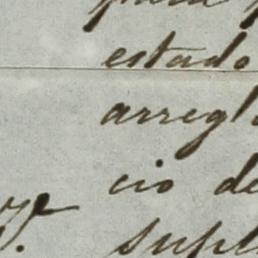 para
estado
arregl
cio de
supl